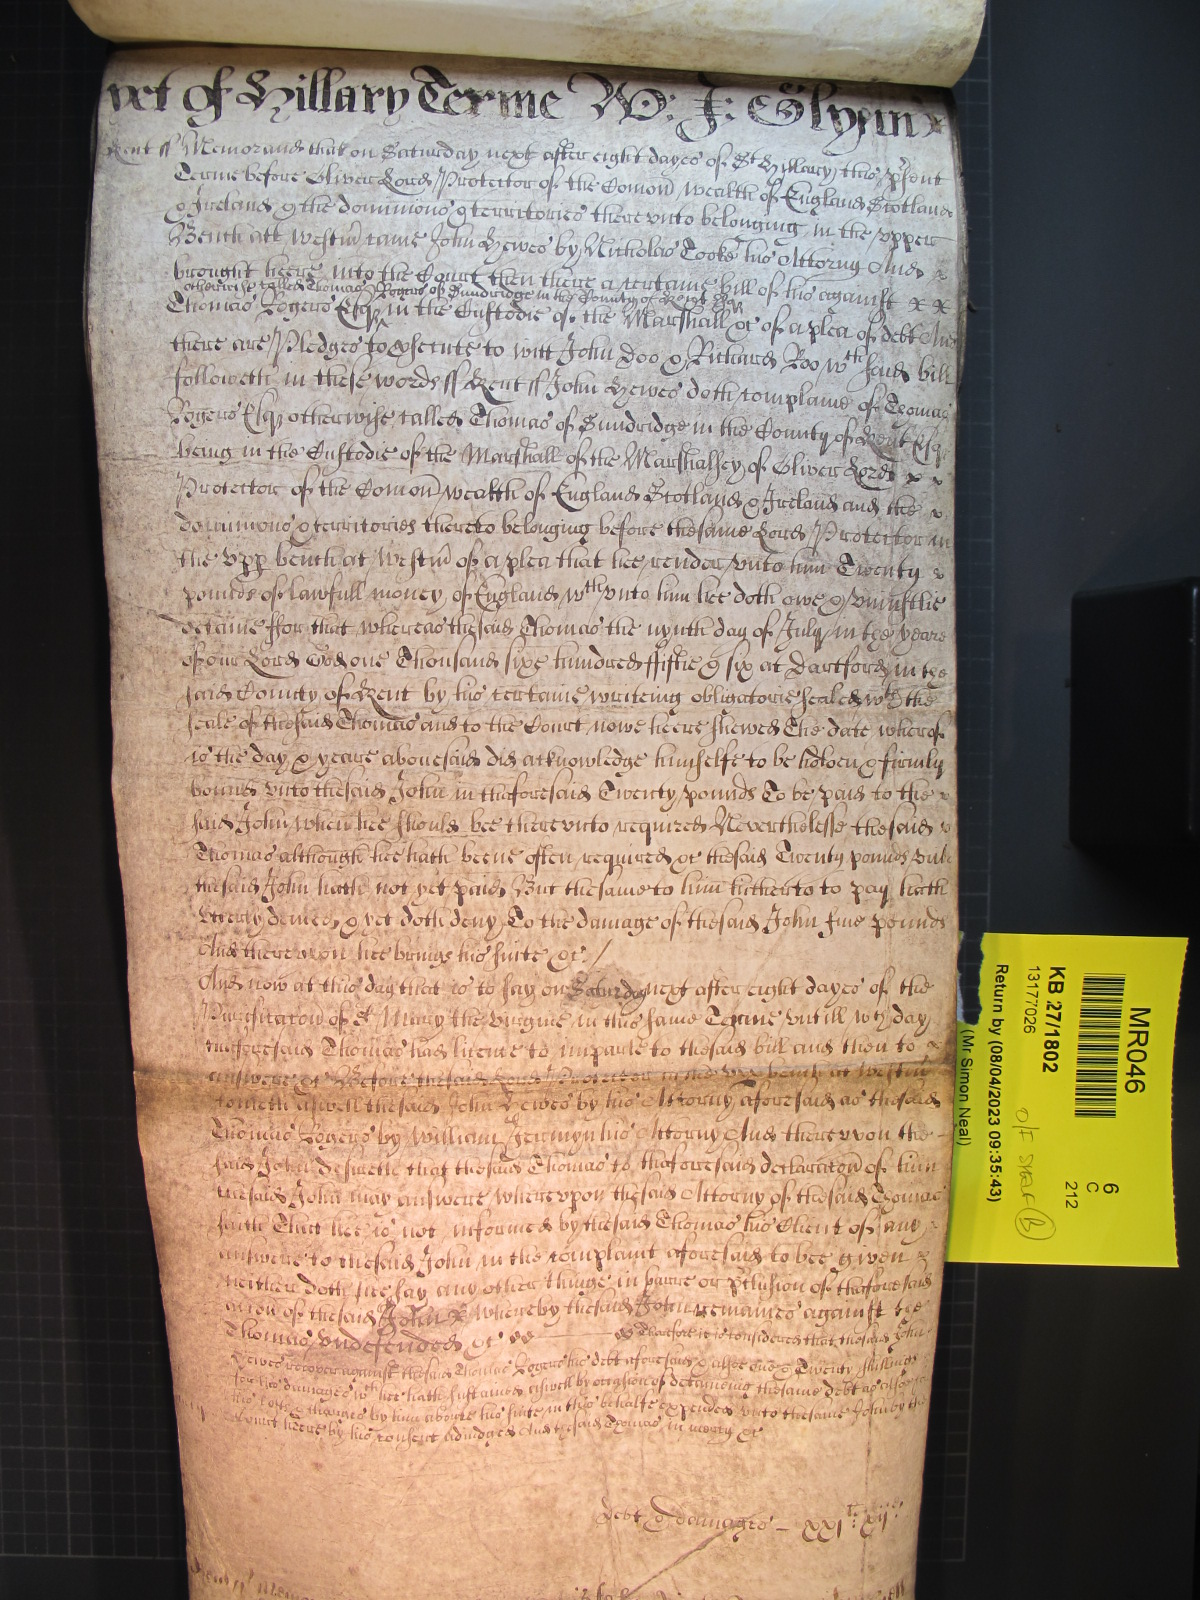 yet of Hillary Terme W: J: Glynn
Kent ss Memorand that on Saturday next after eight dayes of St Hillary this psent
Terme before Oliver Lord Protector of the Comon wealth of England Scotland
& Ireland & the dominions & territories there unto belonging in the upper
Bench att Westm came John Hewes by Nicholas Cooke his Attorny And
brought heere into the Court then there a certaine bill of his against x x
otherwise called Thomas Rogers of Sundridge in the County of Kent Esq
Thomas Rogers Esq in the Custodie of the Marshall &c of a plea of debt And
there are Pledges to psecute to witt John Doo & Richard Roo wth said bill
followeth in these words ss Kent ss John Hewes doth complaine of Thomas
Rogers Esq otherwise called Thomas of Sundridge in the County of Kent Esq
being in the Custodie of the Marshall of the Marshalsey of Oliver Lord x x
Protector of the Comon wealth of England Scotland & Ireland and the
dominions & territories thereto belonging before the same Lord Protector in
the upp bench at Westm of a plea that hee render unto him Twenty
pounds of lawfull money of England wth unto him hee doth owe & uniustlie
detaine ffor that whereas thesaid Thomas the nynth day of July in the yeare
of our Lord God one Thousand sixe hundred ffiftie & six at Dartford in the
said County of Kent by his certaine writeing obligatorie sealed wth the
seale of thesaid Thomas and to the Court nowe heere shewed The date whereof
is the day & yeare abovesaid did acknowledge himselfe to be holden & firmly
bound unto thesaid John in thaforesaid Twenty pounds To be paid to the
said John when hee should bee thereunto required Neverthelesse thesaid
Thomas although hee hath beene often required &c thesaid Twenty pounds unto
thesaid John hath not yet paid But the same to him hitherto to pay hath
utterly denied & yet doth deny To the damage of thesaid John five pounds
And thereupon hee brings his suite &c /
And now at this day that is to say on Saturday next after eight dayes of the
Purification of St Mary the virgine in this same Terme untill wch day
thaforesaid Thomas had licence to imparle to thesaid bill and then to
answere &c Before thesaid Lord Protector in the upp bench at Westm
cometh aswell thesaid John Hewes by his Attorny aforesaid as thesaid
Thomas Rogers by William Jermyn his Attorny And thereupon the
said John desireth that thesaid Thomas to thaforesaid declaracon of him
thesaid John may answere whereupon thesaid Attorny of thesaid Thomas
saith That hee is not informed by thesaid Thomas his Client of any
answere to thesaid John in the complaint aforesaid to bee given
neither doth hee say any other thinge in barre or pclusion of thaforesaid
accon of thesaid John Whereby thesaid John remaines against the
Thomas undefended &c Therefore it is considered that thesaid John
Hewes recover against thesaid Thomas Rogers his debt aforesaid & alsoe One & Twenty shillings
for his damages wch hee hath susteined aswell by occasion of deteineing the same debt as also for
his costs & charges by him aboute his suite in this behalfe expended unto thesame John by the
Court heere by his consent adiudged And thesaid Thomas in mercy &c
debt & damages - xxi li xii d
MR046
6
C
212
KB 27/1802
13177026
O/F SHELF B
Return by (08/04/2023 09:35:43)
(Mr Simon Neal)